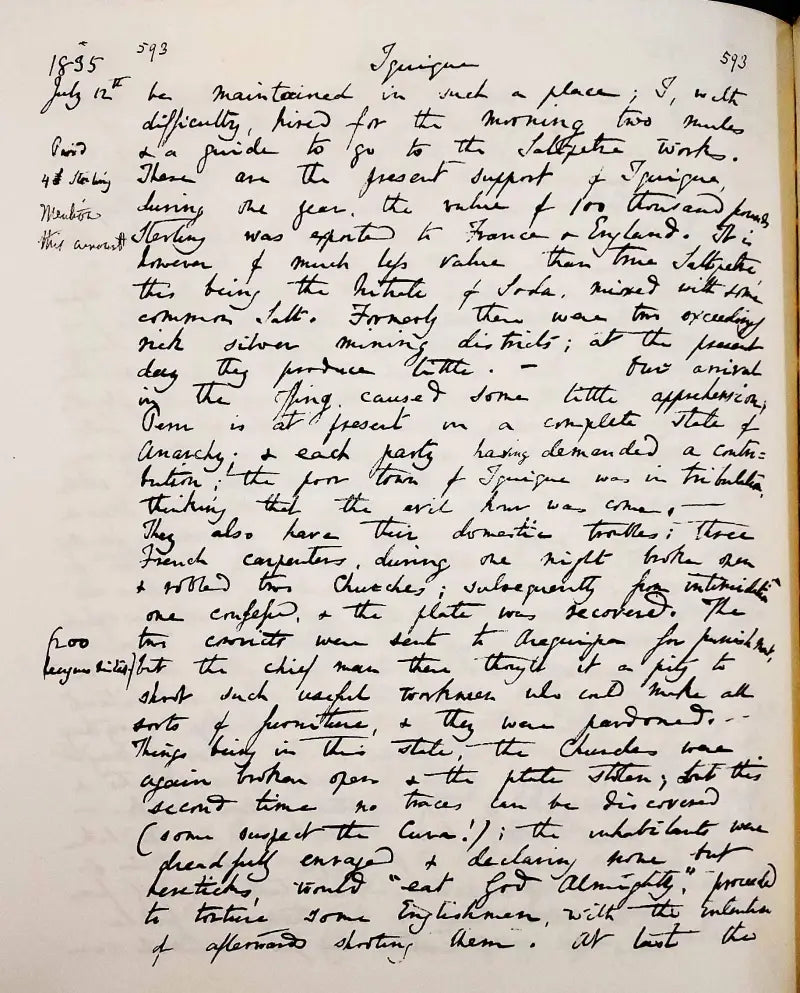 593 Iquique 593
1835
July 12th be maintained in such a place; I, with
difficulty, hired for the morning two mules
Paid & a guide to go to the Saltpetre works.
4£ Sterling These are the present support of Iquique,
Mention during one year, the value of 100 thousand pounds
this amount Sterling was exported to France & England. It is
however of much less value than true Saltpetre,
this being the Nitrate of Soda, mixed with some
common Salt. Formerly there were two exceeding
rich silver mining districts; at the present
day they produce little. — Our arrival
in the offing caused some little apprehension;
Peru is at present in a complete state of
Anarchy; & each party having demanded a contri=
bution; the poor town of Iquique was in tribulation,
thinking that the evil hour was come. —
They also have their domestic troubles; three
French carpenters, during one night broke open
& robbed two Churches; subsequently from intimidation
one confessed, & the plate was recovered. The
two convicts were sent to Arequipa for punishment,
(200 leagues distant) but the chief man there thought it a pity to
shoot such useful workmen who could make all
sorts of furniture, & they were pardoned. --
Things being in this state, the Churches were
again broken open & the plate stolen; but this
second time no traces can be discovered
(some suspect the Cura!); the inhabitants were
dreadfully enraged & declaring none but
hereticks, would "eat God Almighty," proceeded
to torture some Englishmen, with the intention
of afterwards shooting them. At last the